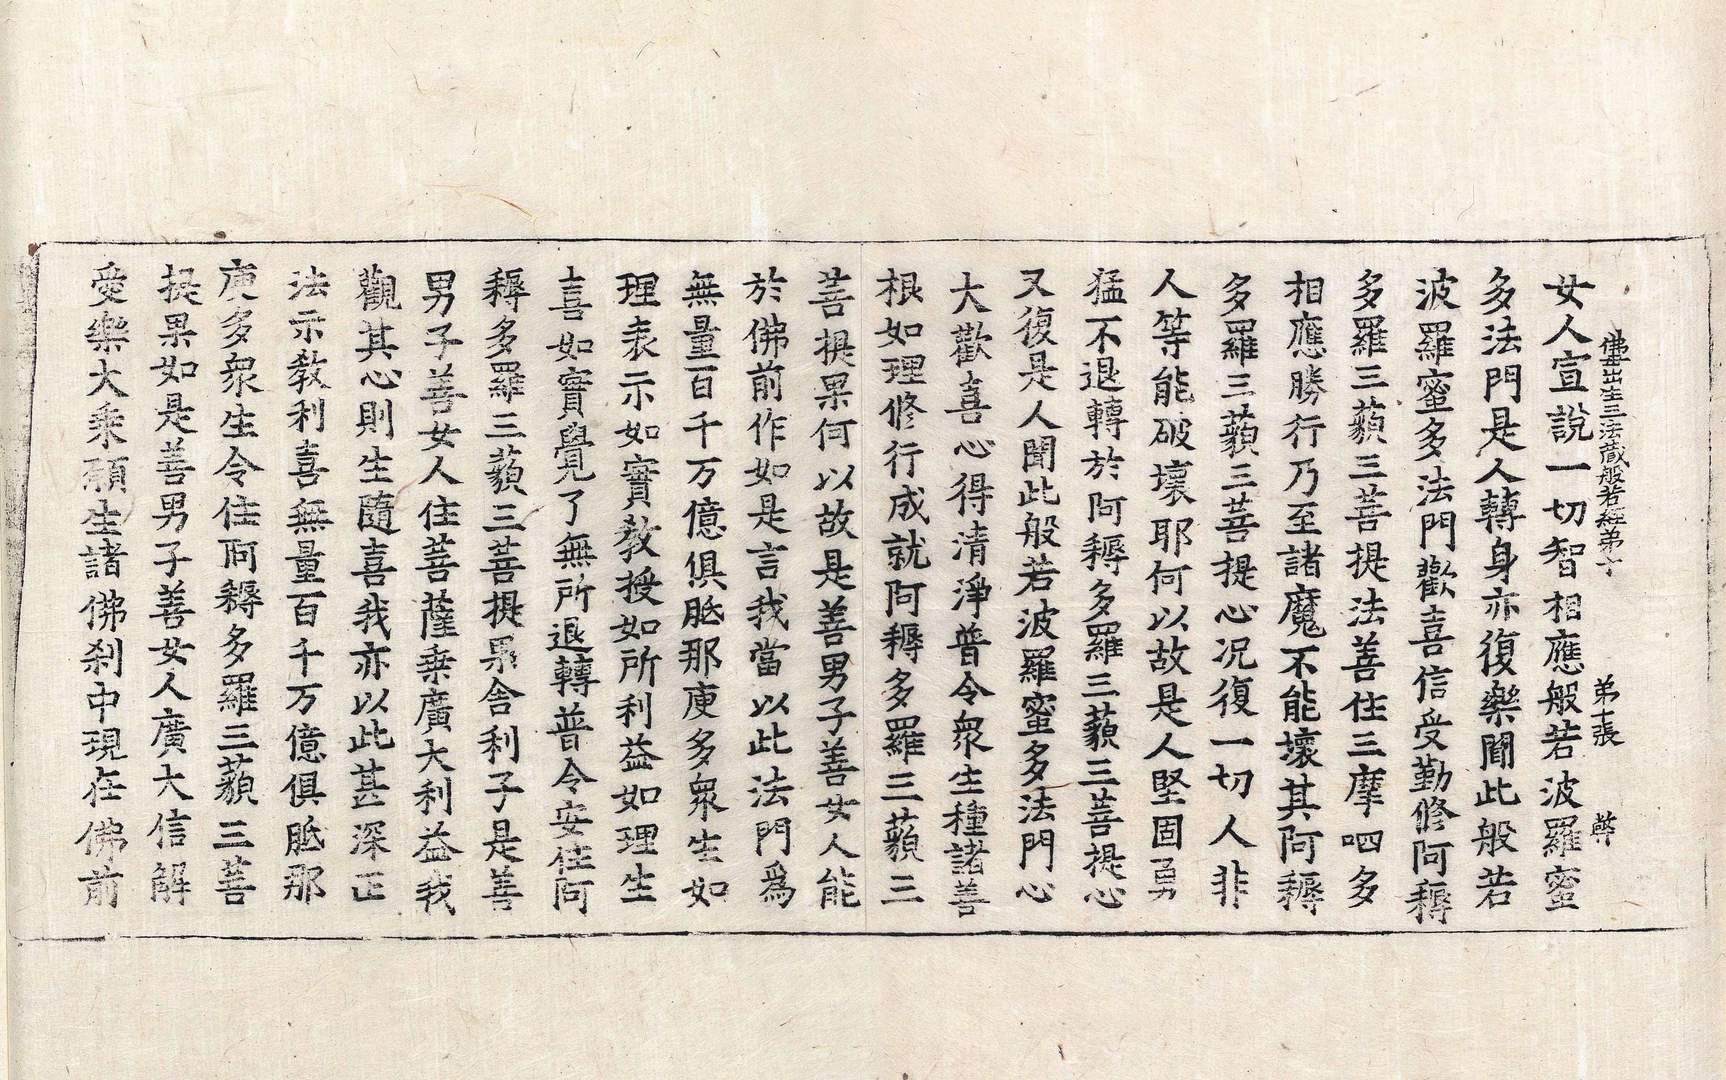 佛母出生三法藏般若經第十 第十張 薛
女人宣說一切智相應般若波羅蜜
多法門是人轉身亦復樂聞此般若
波羅蜜多法門歡喜信受勤修阿耨
多羅三藐三菩提法善住三摩呬多
相應勝行乃至諸魔不能壞其阿耨
多羅三藐三菩提心況復一切人非
人等能破壞耶何以故是人堅固勇
猛不退轉於阿耨多羅三藐三菩提心
又復是人聞此般若波羅蜜多法門心
大歡喜心得清淨普令衆生種諸善
根如理修行成就阿耨多羅三藐三
菩提果何以故是善男子善女人能
於佛前作如是言我當以此法門爲
無量百千万億俱胝那庾多衆生如
理表示如實教授如所利益如理生
喜如實覺了無所退轉普令安住阿
耨多羅三藐三菩提果舍利子是善
男子善女人住菩薩乘廣大利益我
觀其心則生隨喜我亦以此甚深正
法示教利喜無量百千万億俱胝那
庾多衆生令住阿耨多羅三藐三菩
提果如是善男子善女人廣大信解
愛樂大乘願生諸佛刹中現在佛前